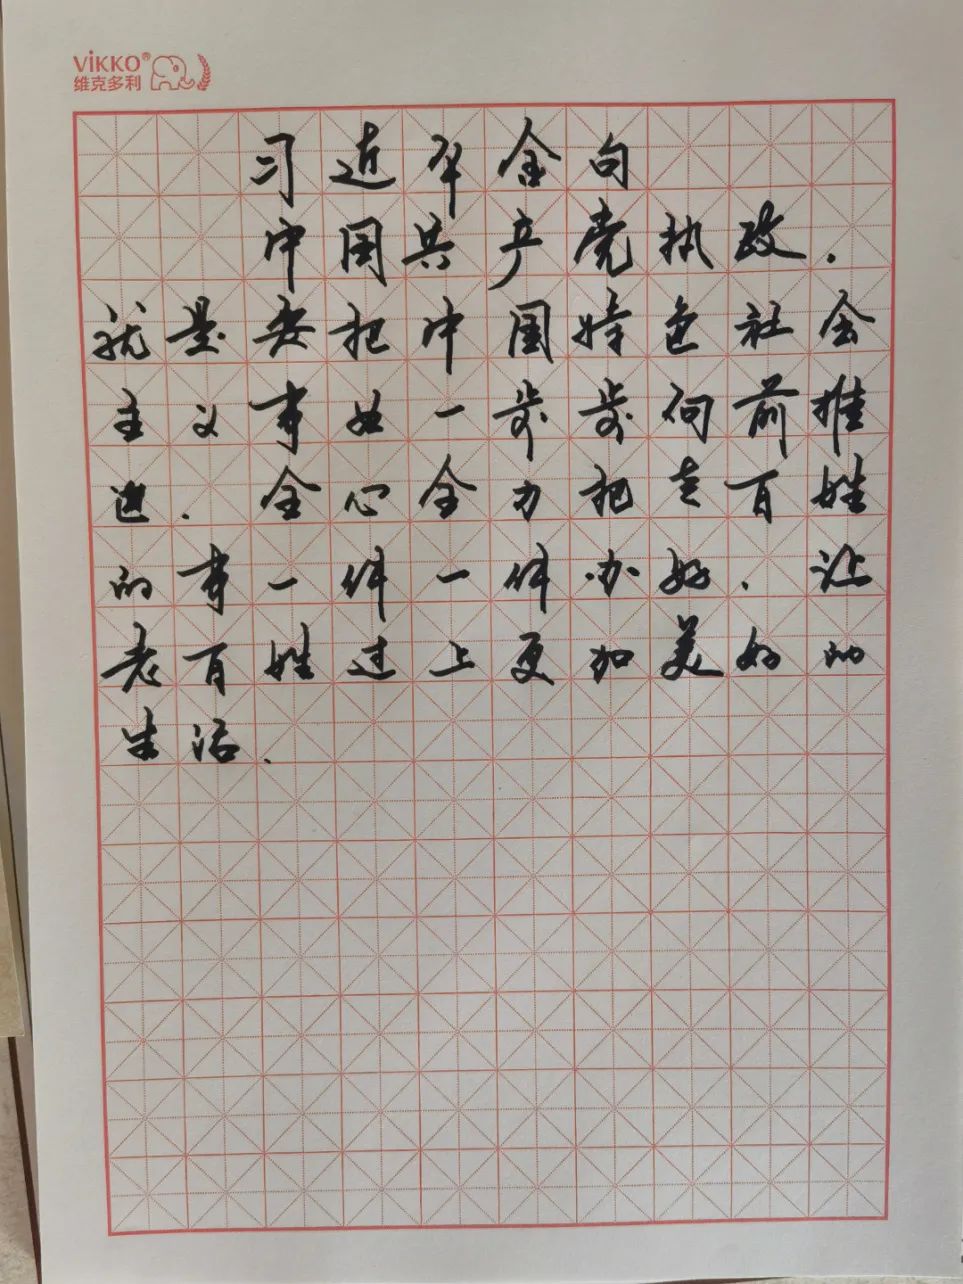 ViKKO®
维克多利
习近平金句
中国共产党执政.
就是要把中国特色社会
主义事业一步步向前推
进.全心全力把老百姓
的事一件一件办好.让
老百姓过上更加美好的
生活.